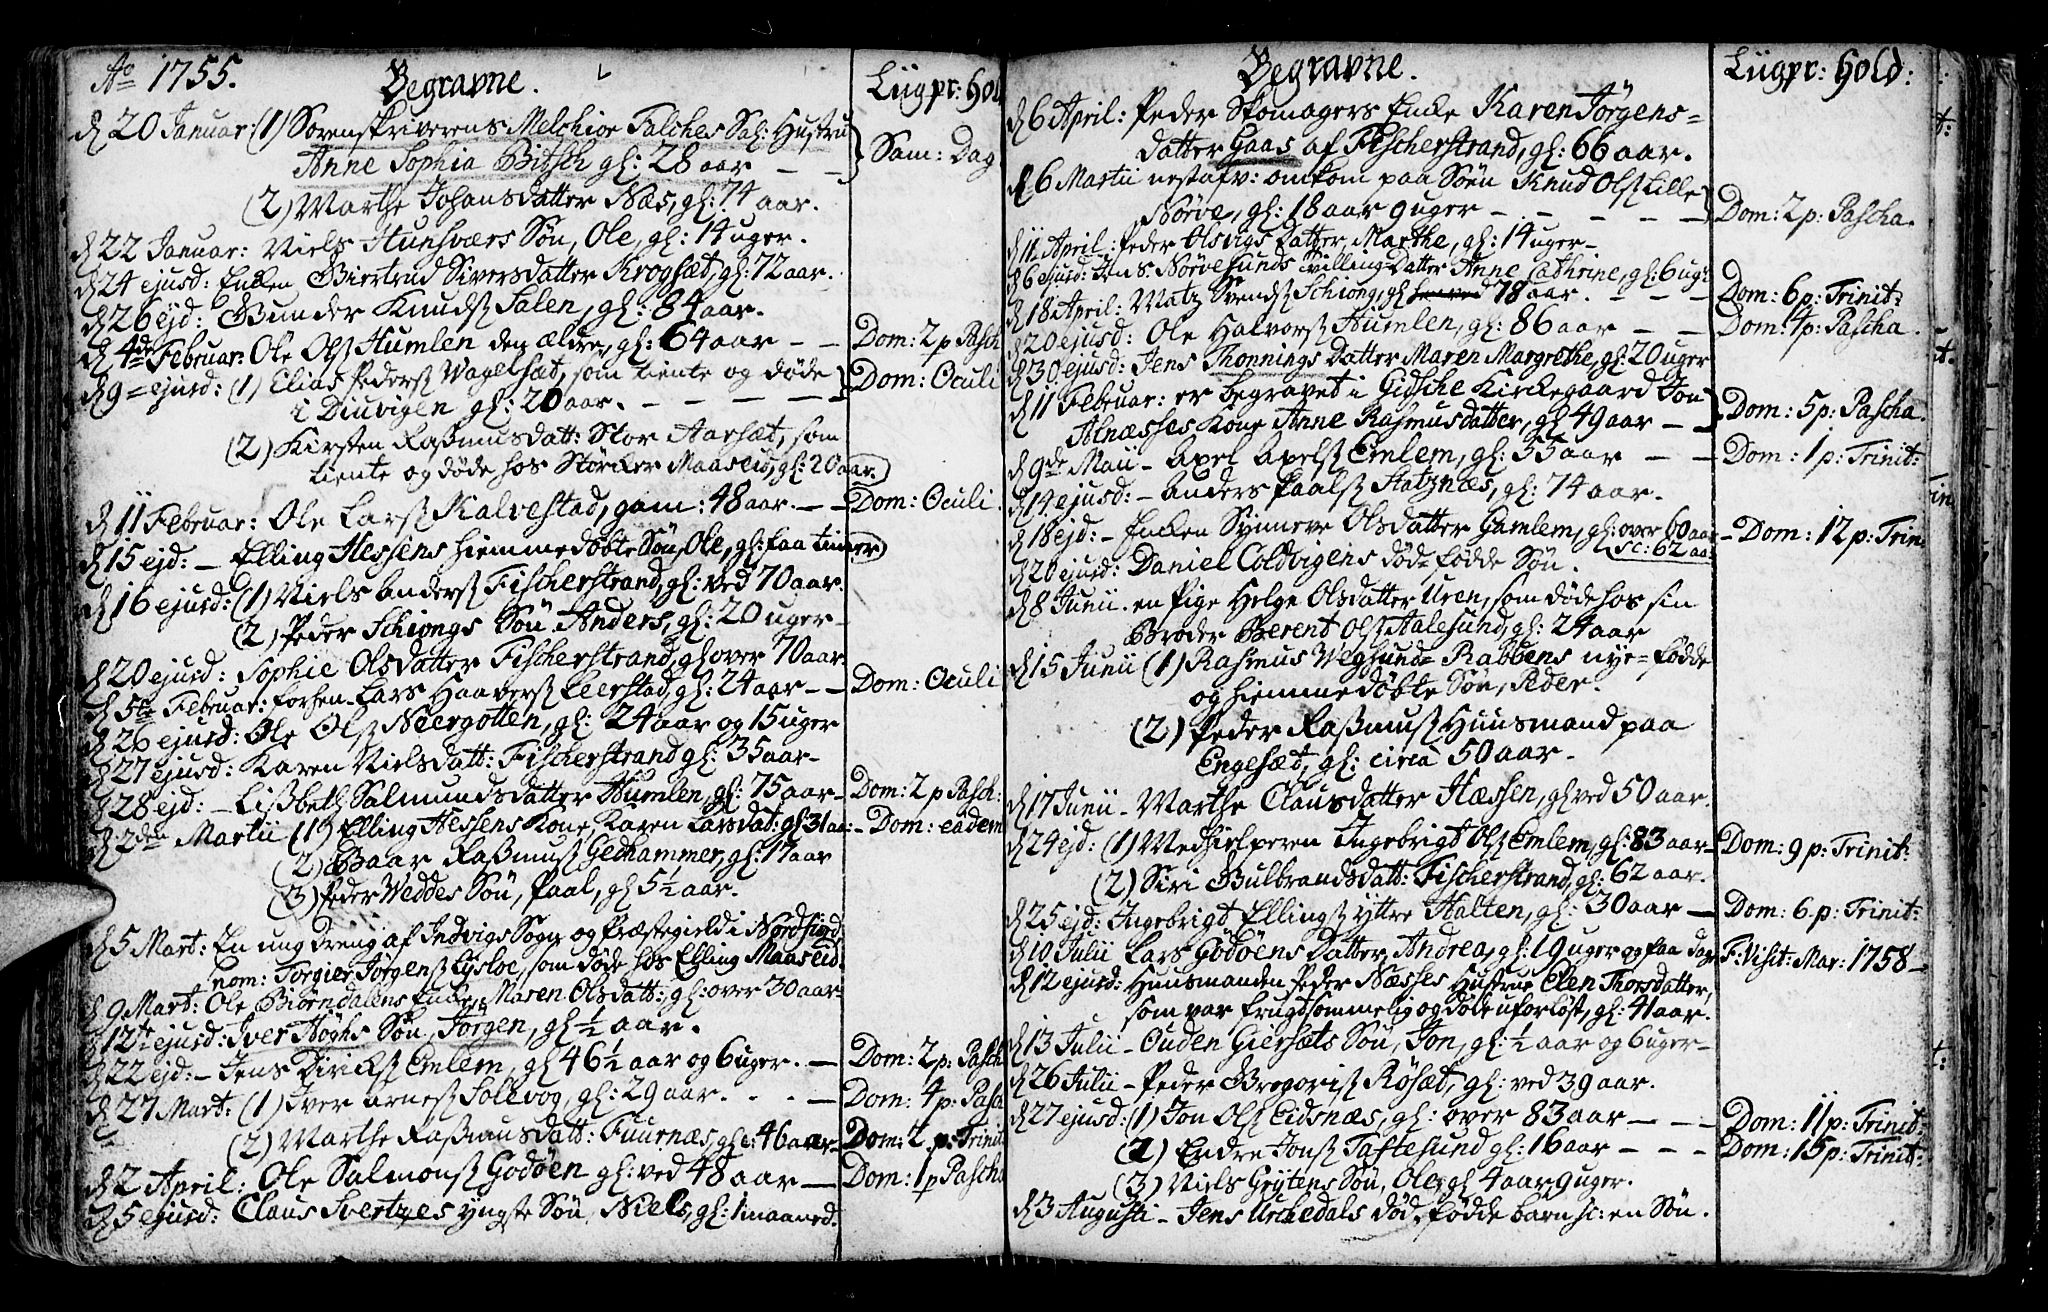 Ao 1755. Begravne. Liigpr: hol
d 20 Januar: (1) Sorenskriverens Melchior Falches Sal: Hustru
Anne Sophia Bitsch gl: 28 aar — — Sam: Dag
(2) Marthe Johansdatter Næs, gl: 74 aar.
d 22 Januar: Niels Hunsværs Søn, Ole, gl: 14 uger.
d 24 ejusd: Enken Giertrud Siversdatter Krogsæt, gl: 72 aar.
d 26 ejd: Gunder Knuds Salen, gl: 84 aar.
d 4de Februar: Ole Ols Humlen den ældre, gl: 64 aar — — Dom: 2 p Pasch
d 9 = ejusd: (1) Elias Peders Wagelsæt, som tiente og døde
i Diuvigen gl: 20 aar. — — — — Dom: Oculi
(2) Kirsten Rasmusdatt: Stor Aarsæt, som
tiente og døde hos Størker Maaseid, gl: 20 aar.
d 11 Februar: Ole Lars Kalvestad, gam: 48 aar. — — Dom: Oculi.
d 15 ejd: — Elling Hessens hiemmedøbte Søn, Ole, gl: faa timer
d 16 ejusd: (1) Niels Anders Fischerstrand, gl: ved 70 aar.
(2) Peder Schiongs Søn Anders, gl: 20 uger —
d 20 ejusd: Sophie Olsdatter Fischerstrand, gl over 70 aar.
d 5te Februar: forhen Lars Haavers Leerstad, gl: 24 aar — — Dom: Oculi
d 26 ejusd: Ole Ols Neergotten, gl: 24 aar og 15 uger
d 27 ejusd: Karen Nielsdatt: Fischerstrand gl: 35 aar —
d 28 ejd: — Lisbeth Salmundsdatter Humlen, gl: 75 aar — Dom: 2 p Pasch:
d 2den Martii (1) Elling Hessens Kone, Karen Larsdat: gl: 31 aar — Dom: eadem
(2) Baar Rasmus Gedhammer, gl: 17 aar
(3) Peder Weddes Søn, Paal, gl 5½ aar.
d 5 Mart: En ung dreng af Indvigs Sogn og Præstegield i Nordfiord
nom: Torgier Jørgens Lysloe, som døde hos Elling Maaseid.
d 9 Mart: Ole Biørndalens Enke, Maren Olsdatt: gl: over 30 aar —
d 12te ejusd: Iver Høghs Søn, Jørgen, gl ½ aar.
d 22 ejd: — Jens Dirichs Emlem, gl 46½ aar og 6 uger. — Dom: 2 p: Pasch
d 27 Mart: (1) Iver Arnes Solevog, gl: 29 aar. — Dom: 4 p: Pasc
(2) Marthe Rasmusdatt: Fuurnæs, gl: 46 aar — Dom: 2 p: Trinit
d 2 April: Ole Salmons Godøen gl: ved 48 aar — Dom: 1 p Pascha
d 5 ejusd: Claus Svertzes yngste Søn, Niels, gl: 1 maaned.
Begravne. Liigpr: hold:
d 6 April: Peder Skomagers Enke Karen Jørgens=
datter Gaas af Fischerstrand, gl: 66 aar.
d 6 Martii nestafv: omkom paa Søen Knud Ols Lille
Nørve, gl: 18 aar 9 uger — — — — — Dom: 2 p: Pascha.
d 11 April: Peder Alsvigs datter, Marthe, gl: 14 uger —
d 6 ejusd: Jens Nørvesunds tvilling Datter Anne Cathrine, gl: 6 ug:
d 18 April: Matz Svends Schiong, gl 78 aar. — — — Dom: 6 p: Trinit:
d 20 ejusd: Ole Halvors Humlen, gl: 86 aar — — Dom: 4 p: Pascha.
d 30 ejusd: Jens Thonnings Datter Maren Margrethe, gl: 20 uger
d 11 Februar: er begravet i Gidsche Kirkegaard Jon
Alnæsses Kone Anne Rasmusdatter, gl 49 aar — — Dom: 5 p: Pascha.
d 9de Maii — Axel Axels Emlem, gl: 55 aar — — Dom: 1 p: Trinit:
d 14 ejusd: — Anders Paals Statznæs, gl: 74 aar.
d 18 ejd: — Enken Synneve Olsdatter Gamlem, gl: over 60 aar — Dom: 12 p: Trin
sc: 62 aar
d 20 ejusd: Daniel Coldvigens død=fødde Søn.
d 8 Junii. en Pige Helge Olsdatter Uren, som døde hos sin
Broder Berent Ols Aalesund, gl: 24 aar
d 15 Junii (1) Rasmus Vegsund=Rabbens nye=fødde
og hiemmedøbte Søn, Peder.
(2) Peder Rasmus Huusmand paa
Engesæt, gl: circa 50 aar.
d 17 Junii — Marthe Clausdatter Hæssen, gl ved 50 aar.
d 24 ejd: (1) Medhielperen Ingebrigt Ols Emlem, gl: 83 aar — Dom: 9 p: Trinit:
(2) Siri Gulbrandsdatt: Fischerstrand, gl: 62 aar.
d 25 ejd: Ingebrigt Ellings yttre Halten, gl: 30 aar — Dom: 6. p: Trinit:
d 10 Julii Lars Godøens Datter, Andrea, gl: 19 uger og faa dage F: Visit: Mar: 1758 —
d 12 ejusd: Huusmanden Peder Næsses Hustrue Elen Thorsdatter,
som var frugdsommelig og døde uforløst, gl: 41 aar.
d 13 Julii — Ouden Giersæts Søn, Jon, gl: ½ aar og 6 uger —
d 26 Julii — Peder Gregoris Røsæt, gl: ved 39 aar.
d 27 ejusd: (1) Jon Ols Eidsnæs, gl: over 83 aar — — — Dom: 11 p: Trinit:
(2) Endre Jons Taftesund gl: 16 aar — — — Dom: 15 p: Trinit:
(3) Niels Grytens Søn, Ole, gl 4 aar 9 uger.
d 3 Augusti — Jens Urkedals død=fødde barn sc: en Søn.